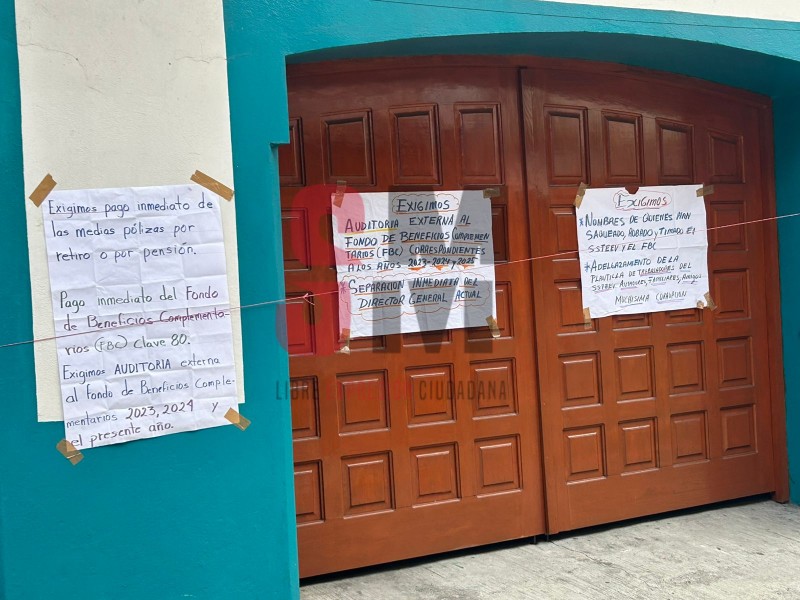 Exigimos pago inmediato de
las medias pólizas por
retiro o por pensión.
Pago inmediato del Fondo
de Beneficios Complementa-
rios (FBC) clave 80.
Exigimos AUDITORIA externa
al Fondo de Beneficios Comple-
mentarios 2023, 2024 y
el presente año.
EXIGIMOS
AUDITORIA EXTERNA AL
FONDO DE BENEFICIOS COMPLEMEN
TARIOS (FBC) CORRESPONDIENTES
A LOS AÑOS 2023-2024 y 2025
* SEPARACION INMEDIATA DEL
DIRECTOR GENERAL ACTUAL
EXIGIMOS
* NOMBRES DE QUIENES HAN
SAQUEADO, ROBADO y TIMADO EL
SSTEEV Y EL FBC
* ADELGAZAMIENTO DE LA
PLANTILLA DE TRABAJADORES DEL
SSTEEV FAMILIARES, AMIGOS
MUCHISIMA CORRUPCION
SM
LIBRE EXPRESIÓN CIUDADANA